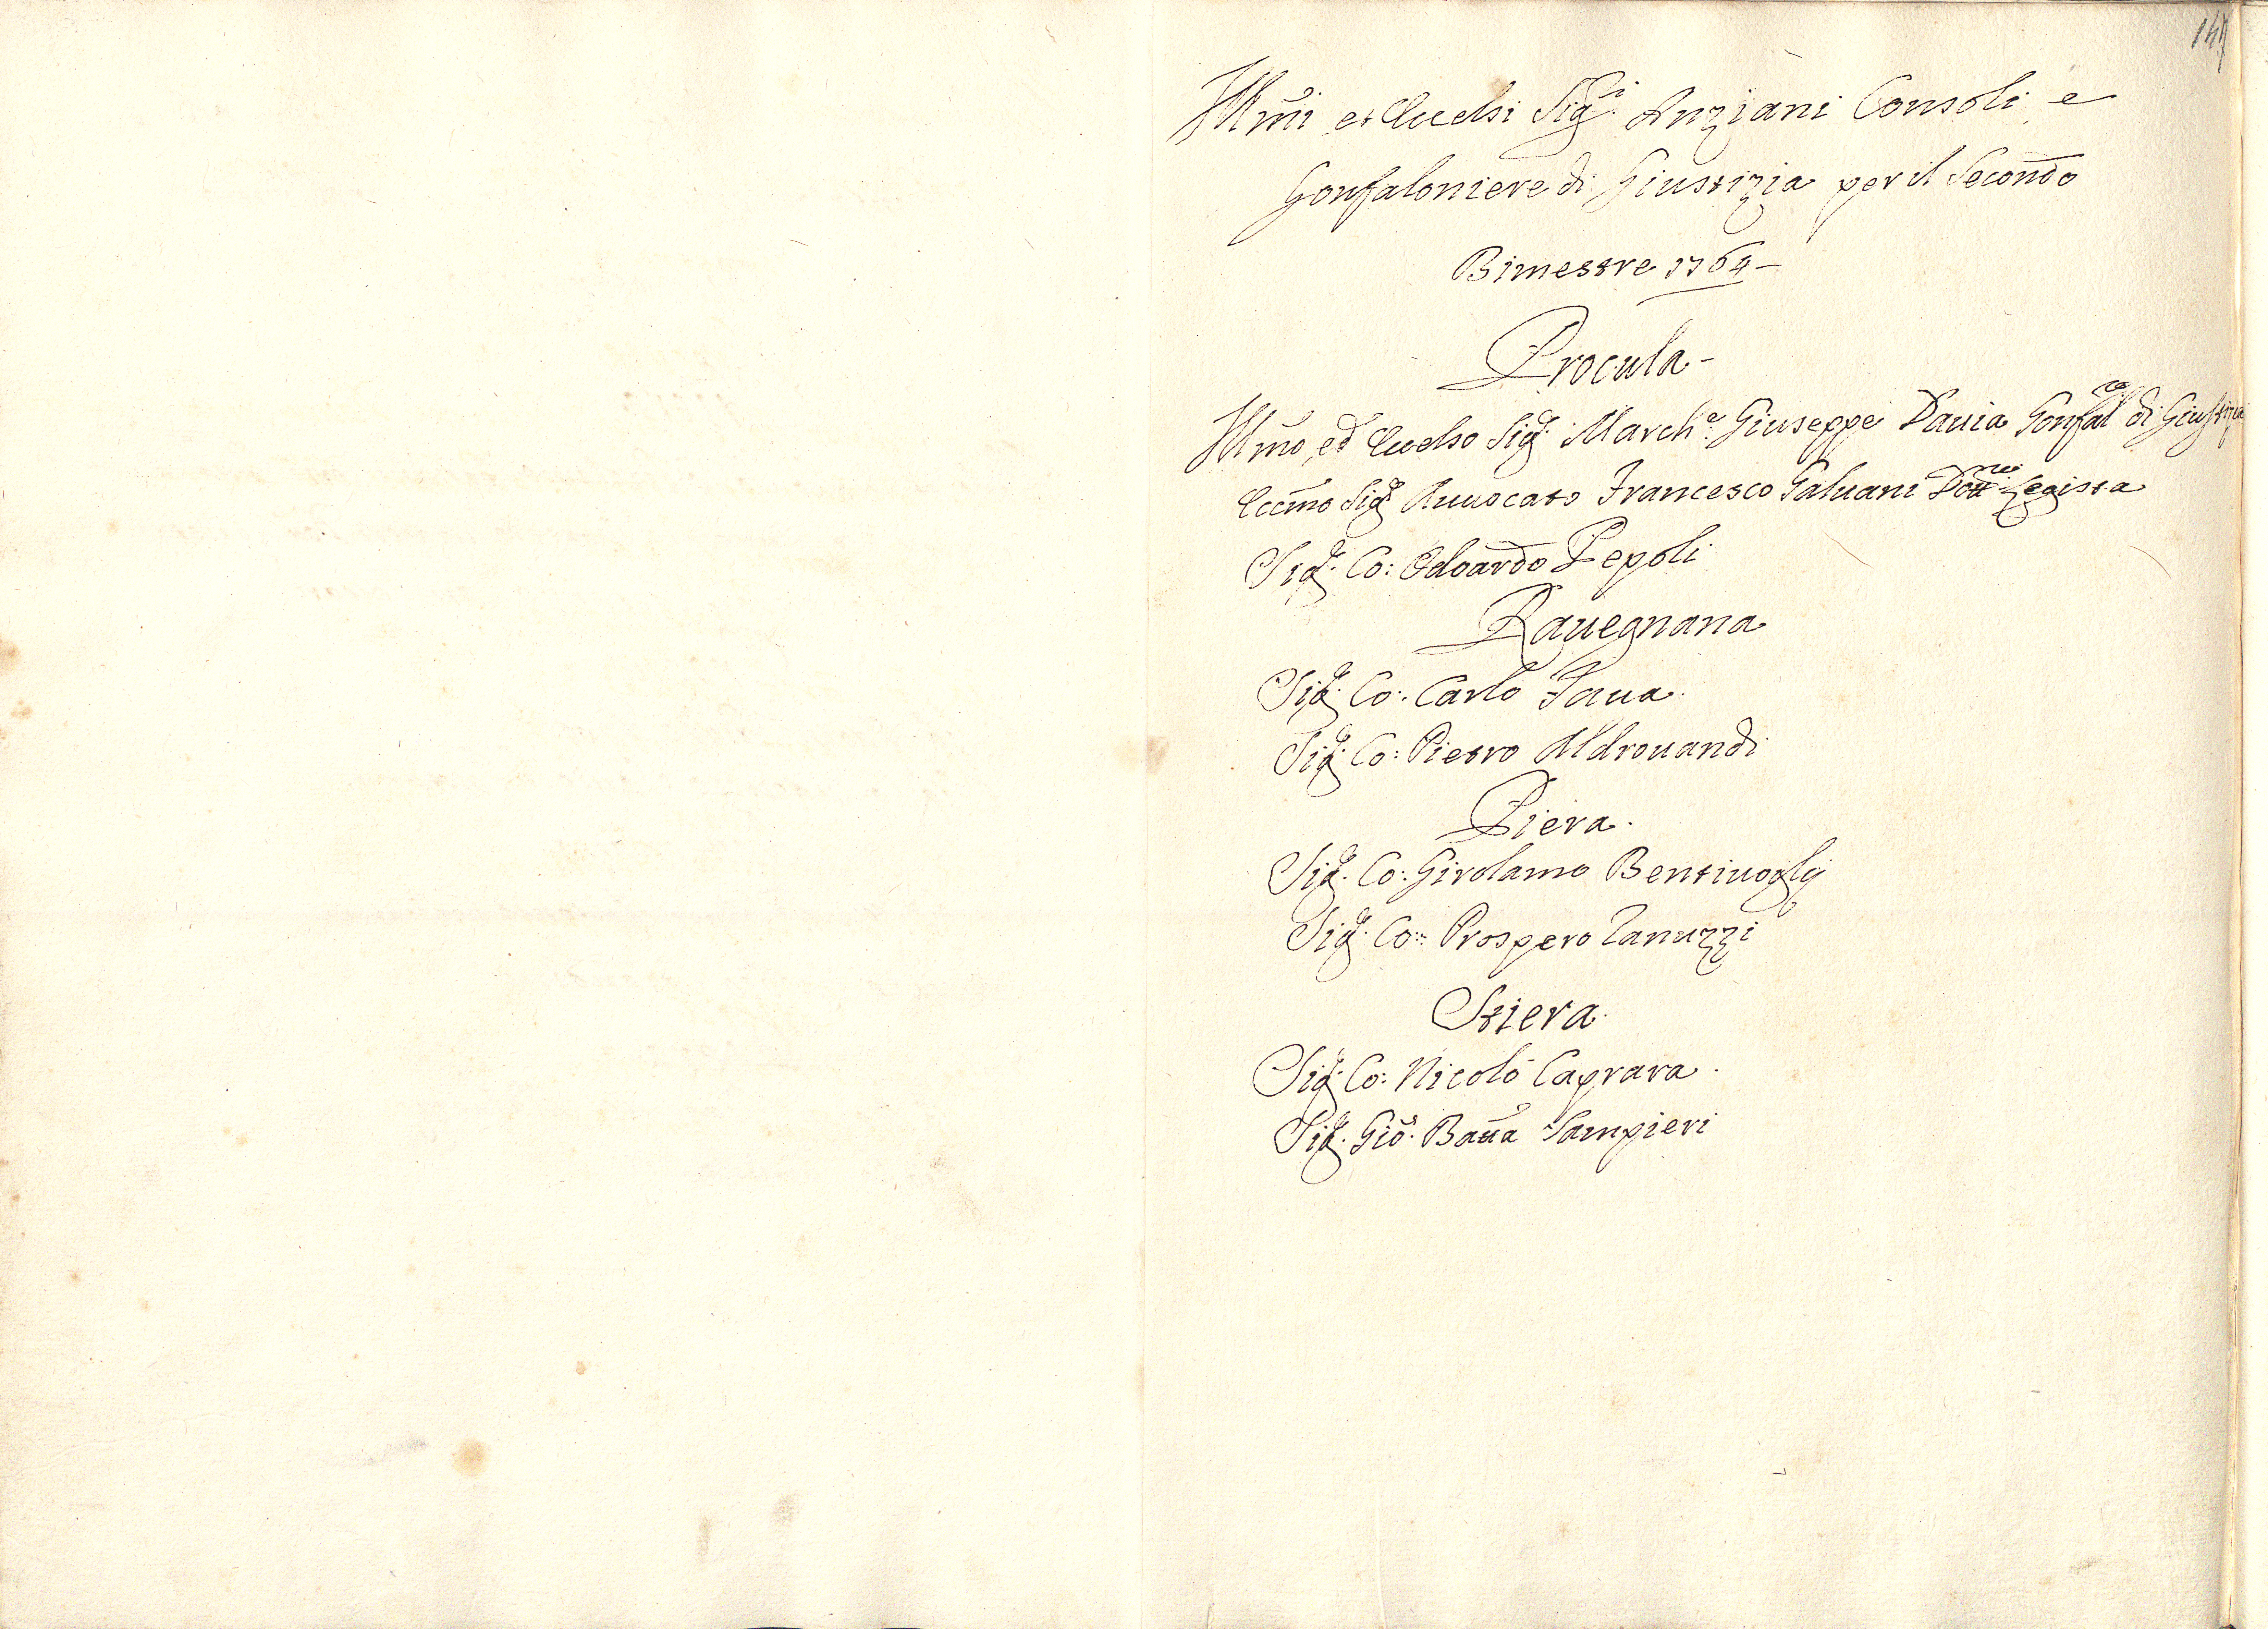 Illmi et Eccelsi Sig.i Anziani Consoli e
Gonfaloniere di Giustizia per il Secondo
Bimestre 1764
Procula
Illmo, ed Eccelso Sig.r March.e Giuseppe Dauia Gonfal.re di Giustizia
Eccmo Sig.r Auuocato Francesco Galuani Dott.re Legista
Sig.r Co: Odoardo Pepoli
Rauegnana
Sig.r Co: Carlo Faua
Sig.r Co: Pietro Aldrouandi
Piera
Sig.r Co: Girolamo Bentiuoglj
Sig.r Co: Prospero Ranuzzi
Stiera
Sig.r Co: Nicolò Caprara
Sig.r Gio: Batta Sampieri